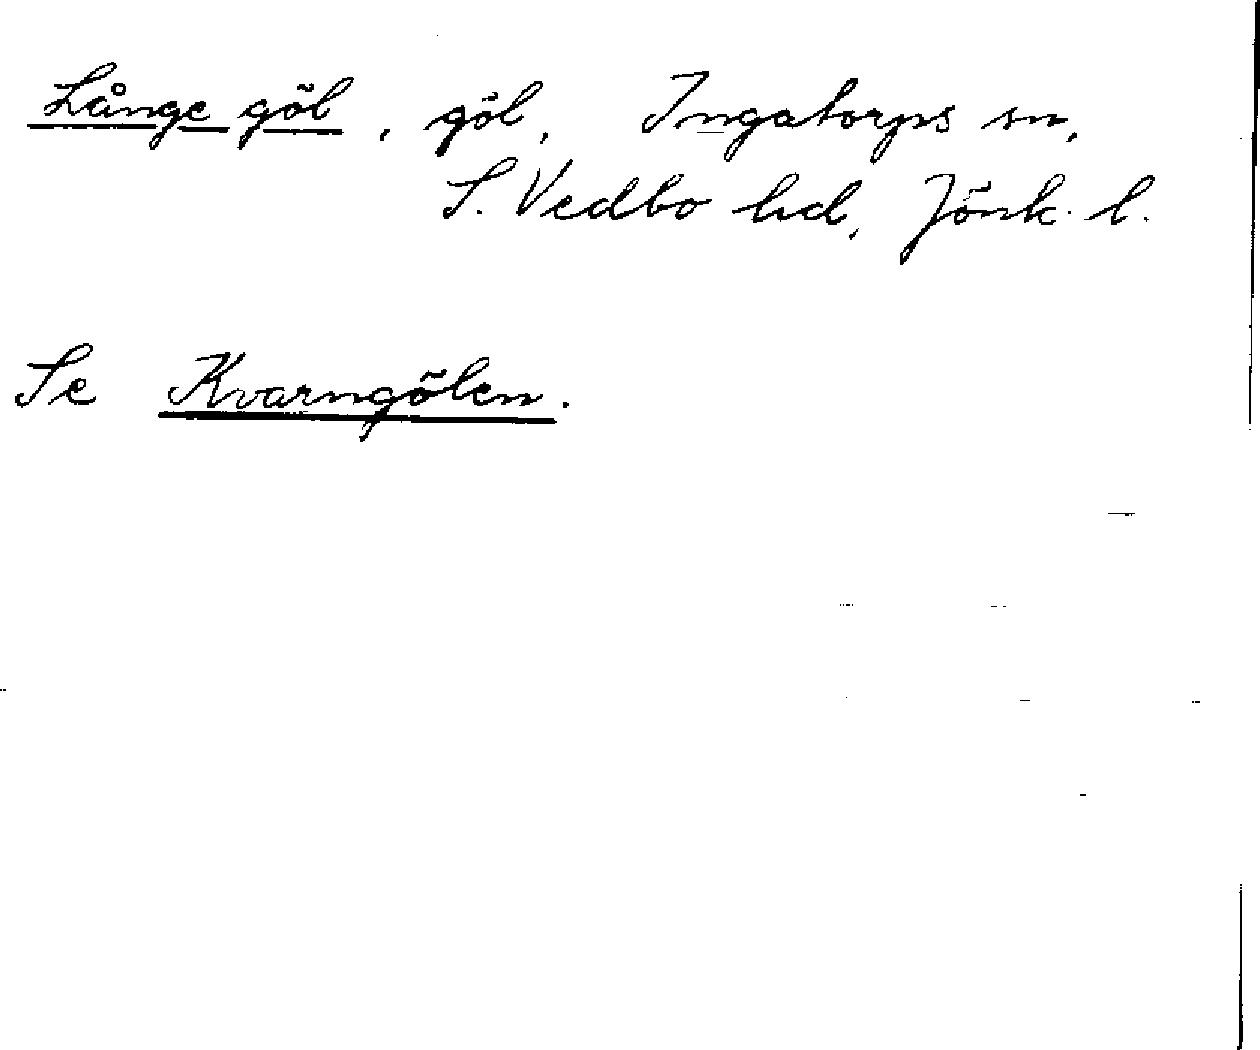 Långe göl, göl, Ingatorps sn,
S. Vedbo hd, Jönk. l.
Se Kvarngölen.